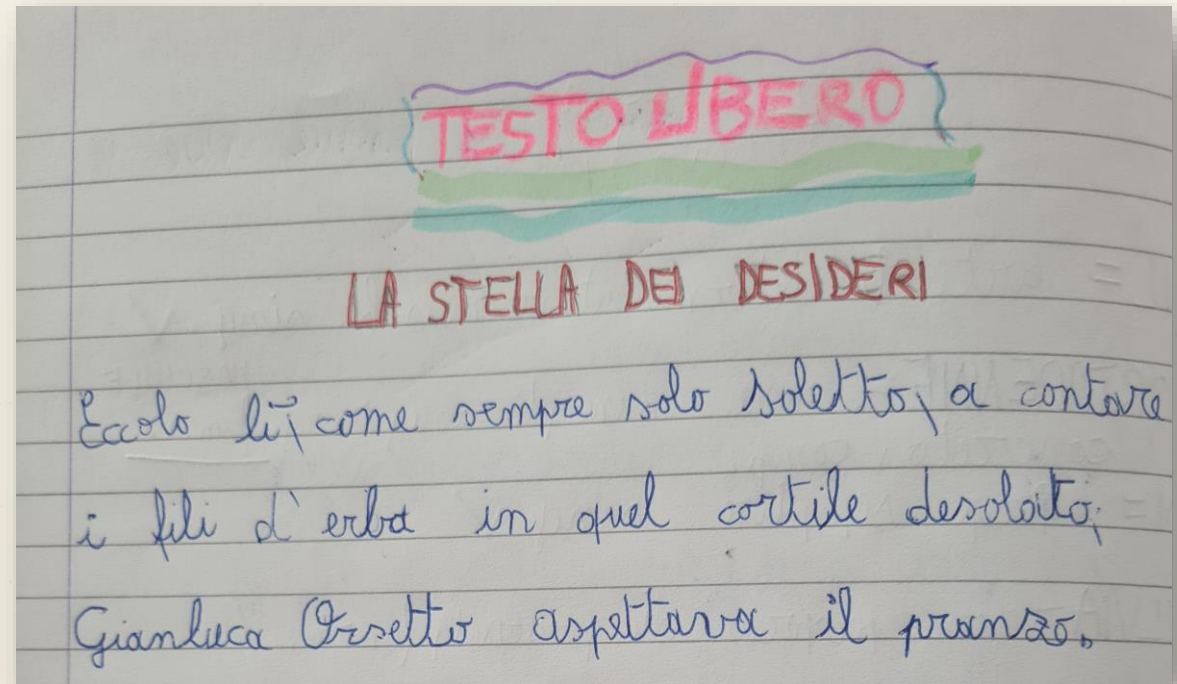 TESTO LIBERO
LA STELLA DEI DESIDERI
Eccolo lì, come sempre solo soletto, a contare
i fili d'erba in quel cortile desolato;
Gianluca Orsetto aspettava il pranzo.